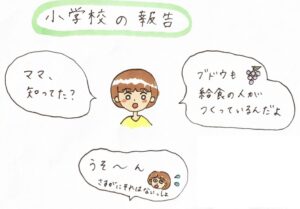 小学校の報告
ママ、
知ってた？
ブドウも
給食の人が
つくっているんだよ
うそ〜ん
さすがにそれはないっしょ